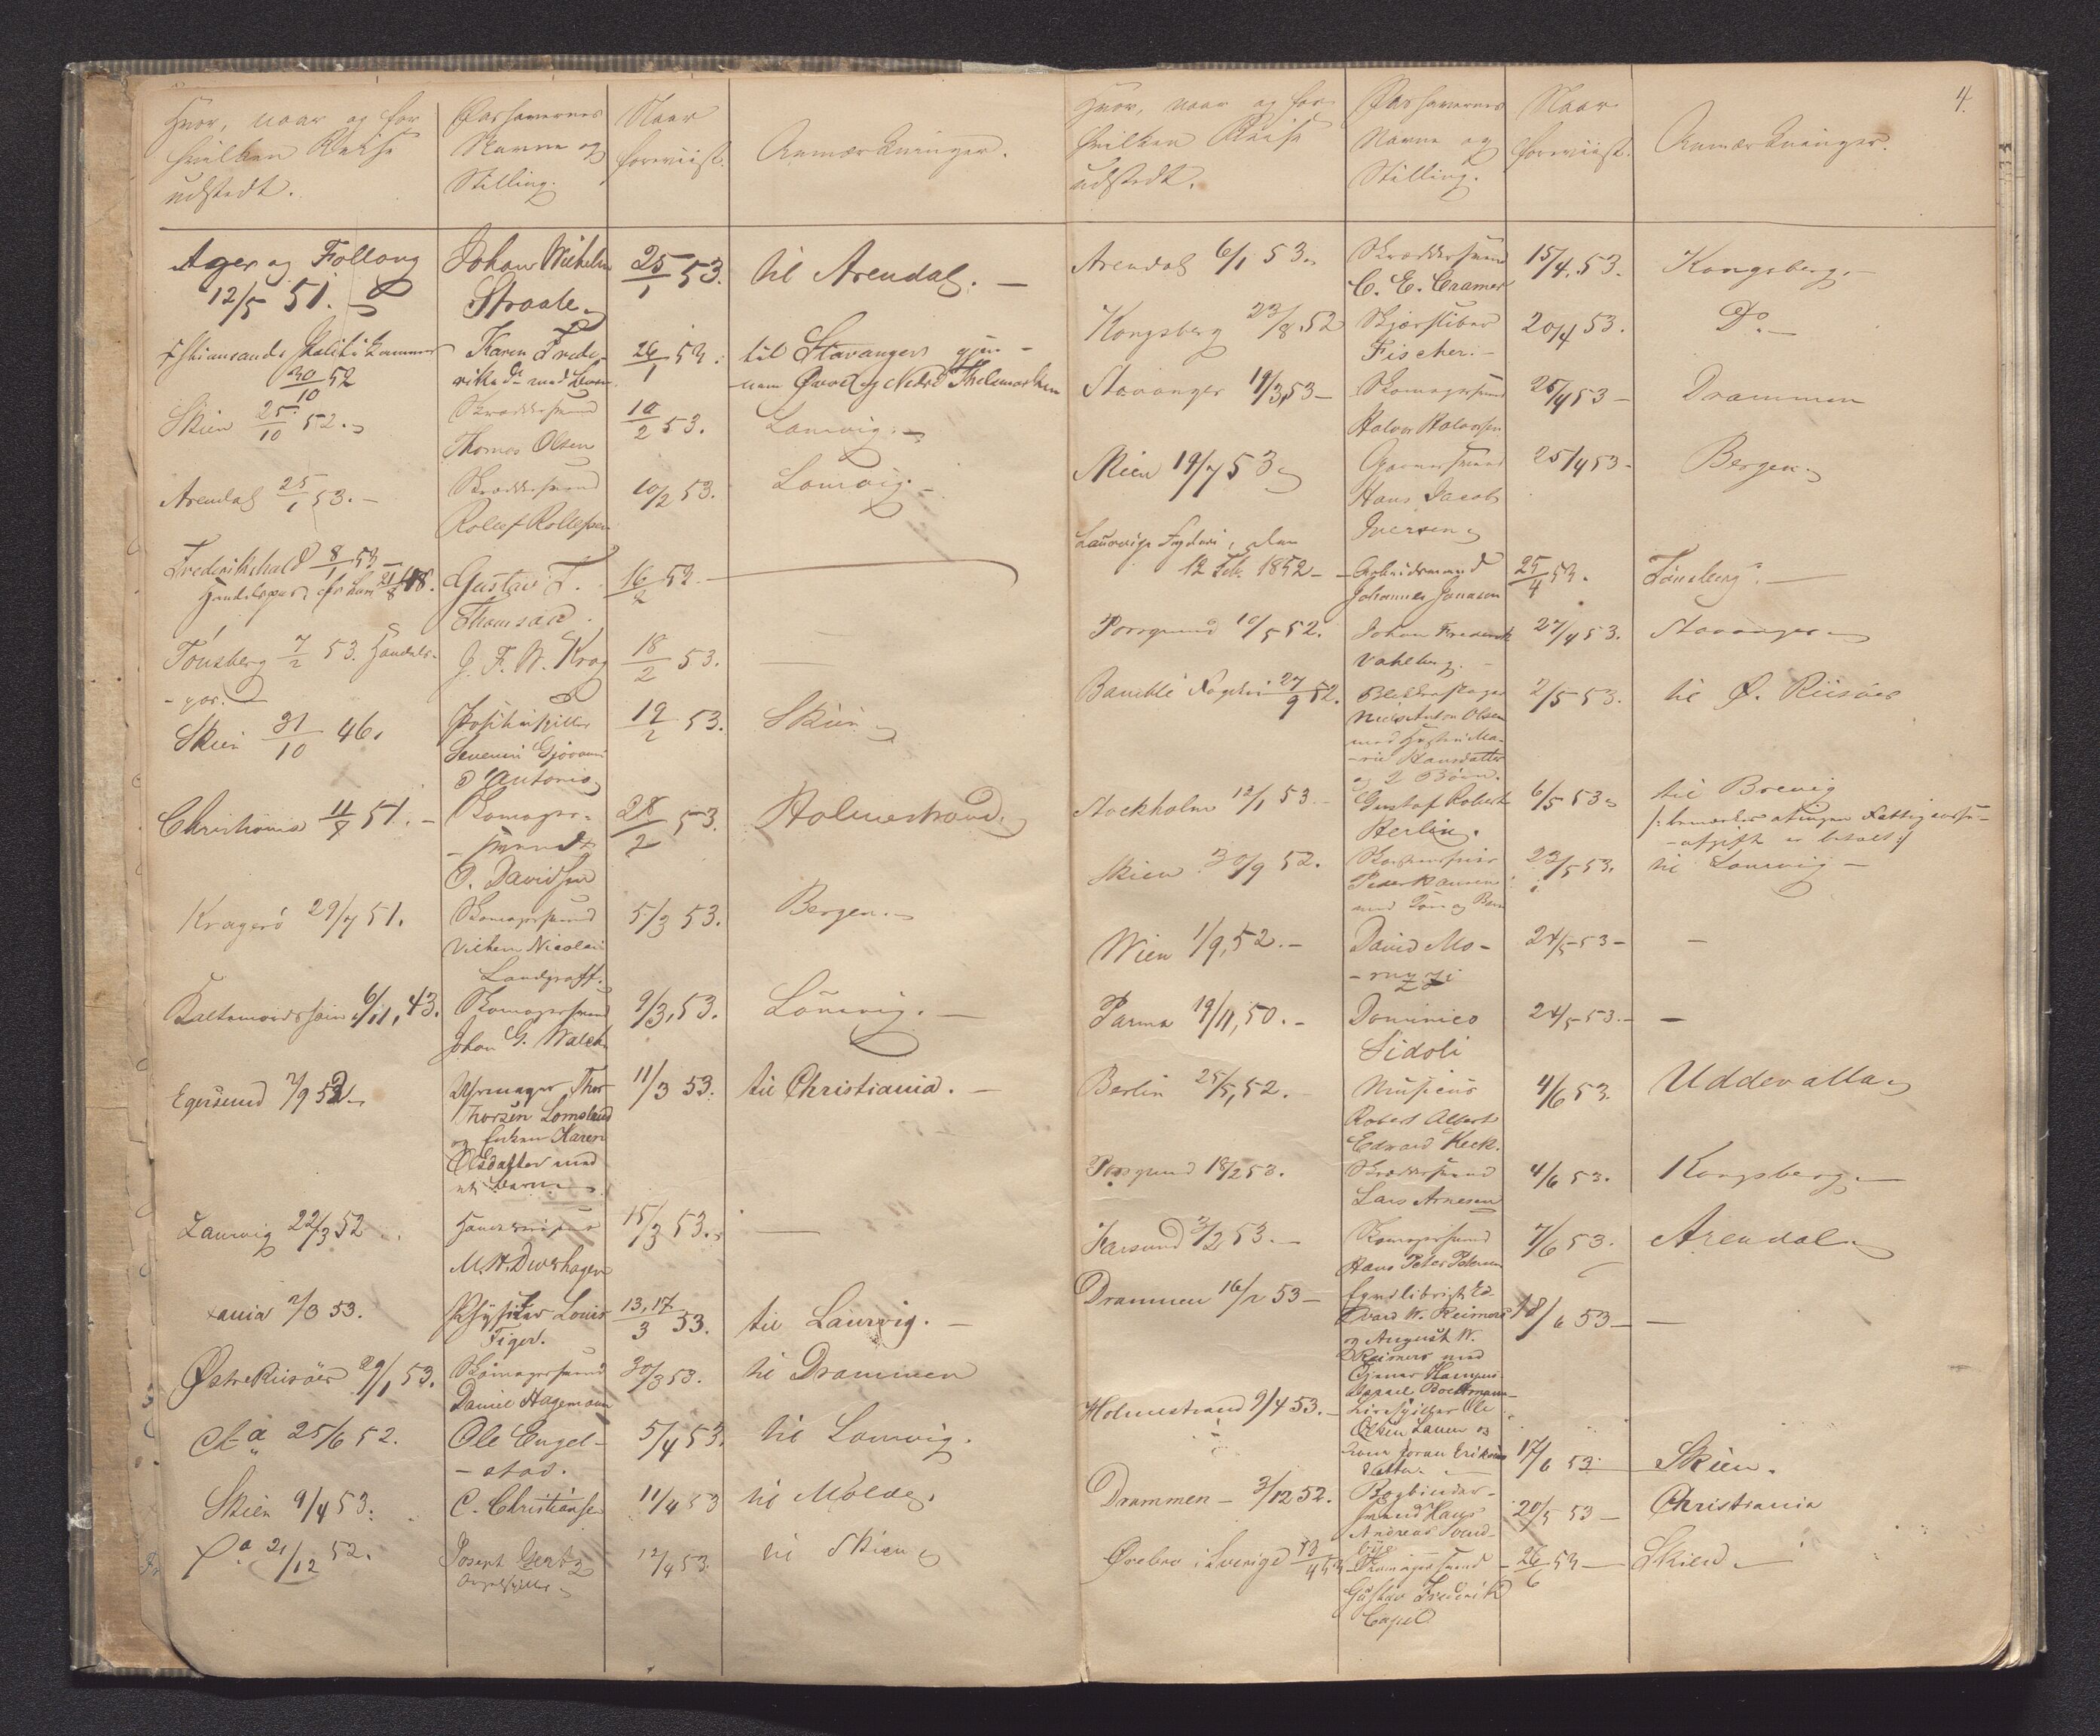 Hvor, naar og for
hvilken Reise
udstedt.
Pashavernes
Navne og
Stilling.
Naar
foreviist.
Anmærkninger.
Ager og Follaug
12/5 51.
Johan Wilhelm
Straale
25/1 53.
til Arendal.
Chrsands Politikammer
30/10 52
Karen Frede-
rikke med
26/1 53.
til Stavanger gjen-
nem Øvre og Nedre Thelemarken
Skien 25/10 52.
Skræddersvend
Thomas Olsen
10/2 53.
Laurvig.
Arendal 25/1 53.
Skræddersvend
Rollef Rollefsen
10/2 53.
Laurvig.
Frederikshald 8/1 53
Handelspas 21/8 48.
Gustav F.
Thomsen
16/2 53
Tönsberg 7/2 53. Handels-
-pas.
J. F. W. Krag
18/2 53.
Skien 31/10 46.
Positivspiller
Severin Gjovani
d'Antonio
19/2 53.
Skien
Christiania 11/8 51.
Skomager-
-svend
O. Davidsen
28/2 53.
Holmestrand.
Kragerö 29/7 51.
Skomagersvend
Vilhem Nicolai
Landgraff.
5/3 53.
Bergen.
6/11, 43.
Skomagersvend
Johan G. Walch
9/3, 53.
Laurvig.
Egersund 7/9 52
Uhrmager Thor
Thorsen Lomeland
og Karen
Olsdatter med
et Barn
11/3 53.
til Christiania.
Laurvig 22/3 52
M. H. Dworhagen
15/3 53.
xania 2/3 53.
Physiker Louis
Figer.
13, 17/3 53.
til Laurvig.
Østre Riisöer 29/1 53.
Skomagersvend
Daniel Hagemann
30/3 53.
til Drammen
25/6 52.
Ole Engel-
-stad.
5/4 53.
til Laurvig.
Skien 9/4 53.
C. Christiansen
11/4 53
til Molde.
Do 21/12 52.
Joseph Gentz
Orgelspiller
12/4 53
til Skien
4.
Hvor, naar og for
hvilken Reise
udstedt.
Pashavernes
Navne og
Stilling.
Naar
foreviist.
Anmærkninger.
Arendal 6/1 53.
Skræddersvend
C. E. Cramer
15/4. 53.
Kongsberg.
Kongsberg 23/8 52
Skjærsliber
Fischer.
20/4 53.
Do.
Stavanger 19/3 53
Skomagersvend
Halvor Halvorsen
25/4 53
Drammen
Skien 19/7 53
Garversvend
Hans Jacob
Iversen
25/4 53
Bergen.
Laurvigs Fogderi, den
12 Feb. 1852
Arbeidsmand
Johannes Jonason
25/4 53.
Tönsberg.
Porsgrund 10/5 52.
Johan Frederik
Vahlberg.
27/4 53.
Stavanger
Bamble Fogderi 27/9 52.
Blikkenslager
Niels Anton Olsen
med Hustru Ma-
-rie Hansdatter
og 2 Börn.
2/5 53.
til Ø. Riisöer
Stockholm 12/1 53.
Gustaf Robert
Herlin.
6/5 53
til Brevig
/: bemærket at ingen Fattigcasse-
-afgift er betalt :/
Skien 30/9 52.
Peder Hansen
med Kone og Barn
23/5 53.
til Laurvig
Wien 1/9, 52.
David Mo-
-ruzzi
24/5 53
Parma 19/11, 50.
Dominico
Sidoli
24/5 53.
Berlin 25/5, 52.
Musicus
Robert Albert
Edvard Keck.
4/6 53.
Uddevalla
Porsgrund 18/2 53.
Skræddersvend
Lars Arnesen
4/6 53.
Kongsberg.
Farsund 3/2 53.
Skomagersvend
Hans Peter Petersen
7/6 53.
Arendal
Drammen 16/2 53
Eqvilibrist Ed-
vard W. Reimers
og August W.
Reimers med
18/6 53
Holmestrand 9/4 53.
Lirespiller Ole
Olsen Lauen og
Kone Joran Eriks-
datter.
17/6 53
Skien.
Drammen 3/12 52.
Bogbinder-
svend Hans
Andreas
20/5 53
Christiania
Örebro i Sverige
Skomagersvend
Gustav Frederik
Capel
26/6 53
Skien